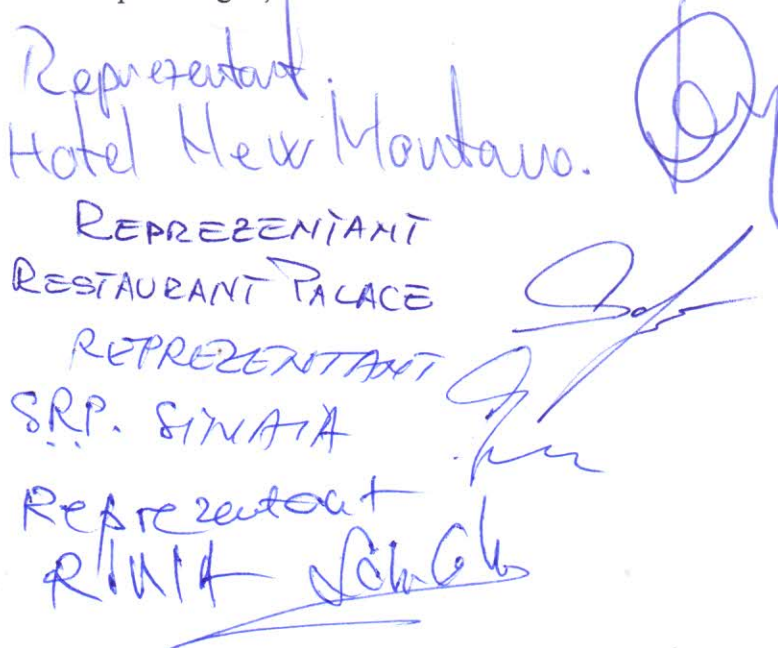 Reprezentant.
Hotel New Montana.
REPREZENTANT
RESTAURANT PALACE
REPREZENTANT
S.R.P. SINAIA
Reprezentant
RINIA